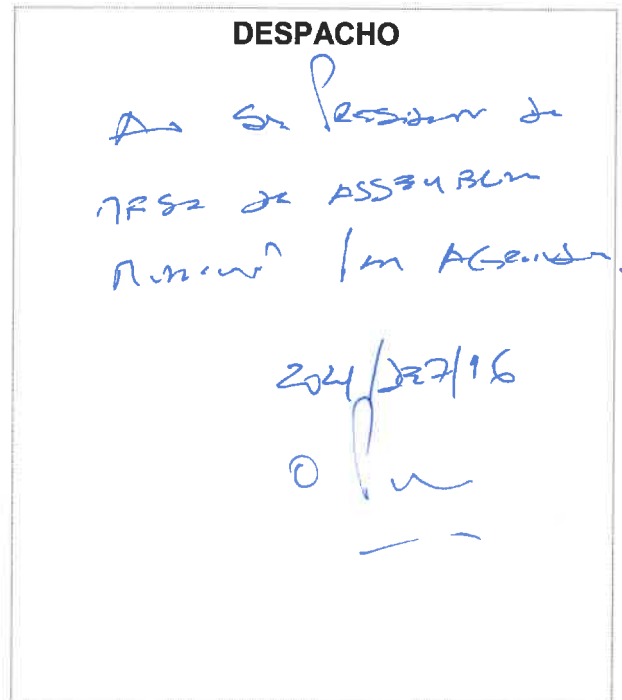 DESPACHO
Ao Sr Presidente da
Mesa da ASSEMBLEIA
Municipal para Agendar.
O